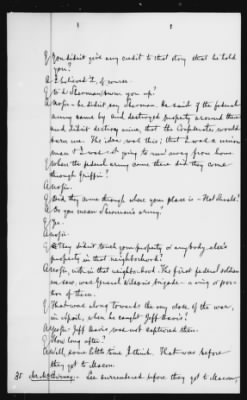 Q/ You didn't give any credit to that story that he told
you?
A/ I believed it, of course.
Q/ Did Sherman burn you up?
A/ No sir - he didn't say Sherman. He said if the federal
army came by and destroyed property around there
and didn't destroy mine, that the Confederates would
burn me. The idea was this; that I was a union
man & I was not going to run away from home.
Q/ When the federal army came there did they come
through Griffin?
A/ No sir.
Q/ Did they come through where your place is - Flat Shoals?
A/ Do you mean Sherman's army?
Q/ Yes.
A/ No sir.
Q/ They didn't touch your property or anybody else's
property in that neighborhood?
A/ No sir, not in that neighborhood. The first federal soldiers
we saw was General Wilson's brigade - a wing or por-
tion of them.
Q/ That was along towards the very close of the war,
in April, when he caught Jeff Davis?
A/ Yes sir - Jeff Davis was not captured then.
Q/ How long after?
A/ Well, some little time I think. That was before
they got to Macon.
35 Lee surrendered before they got to Macon,